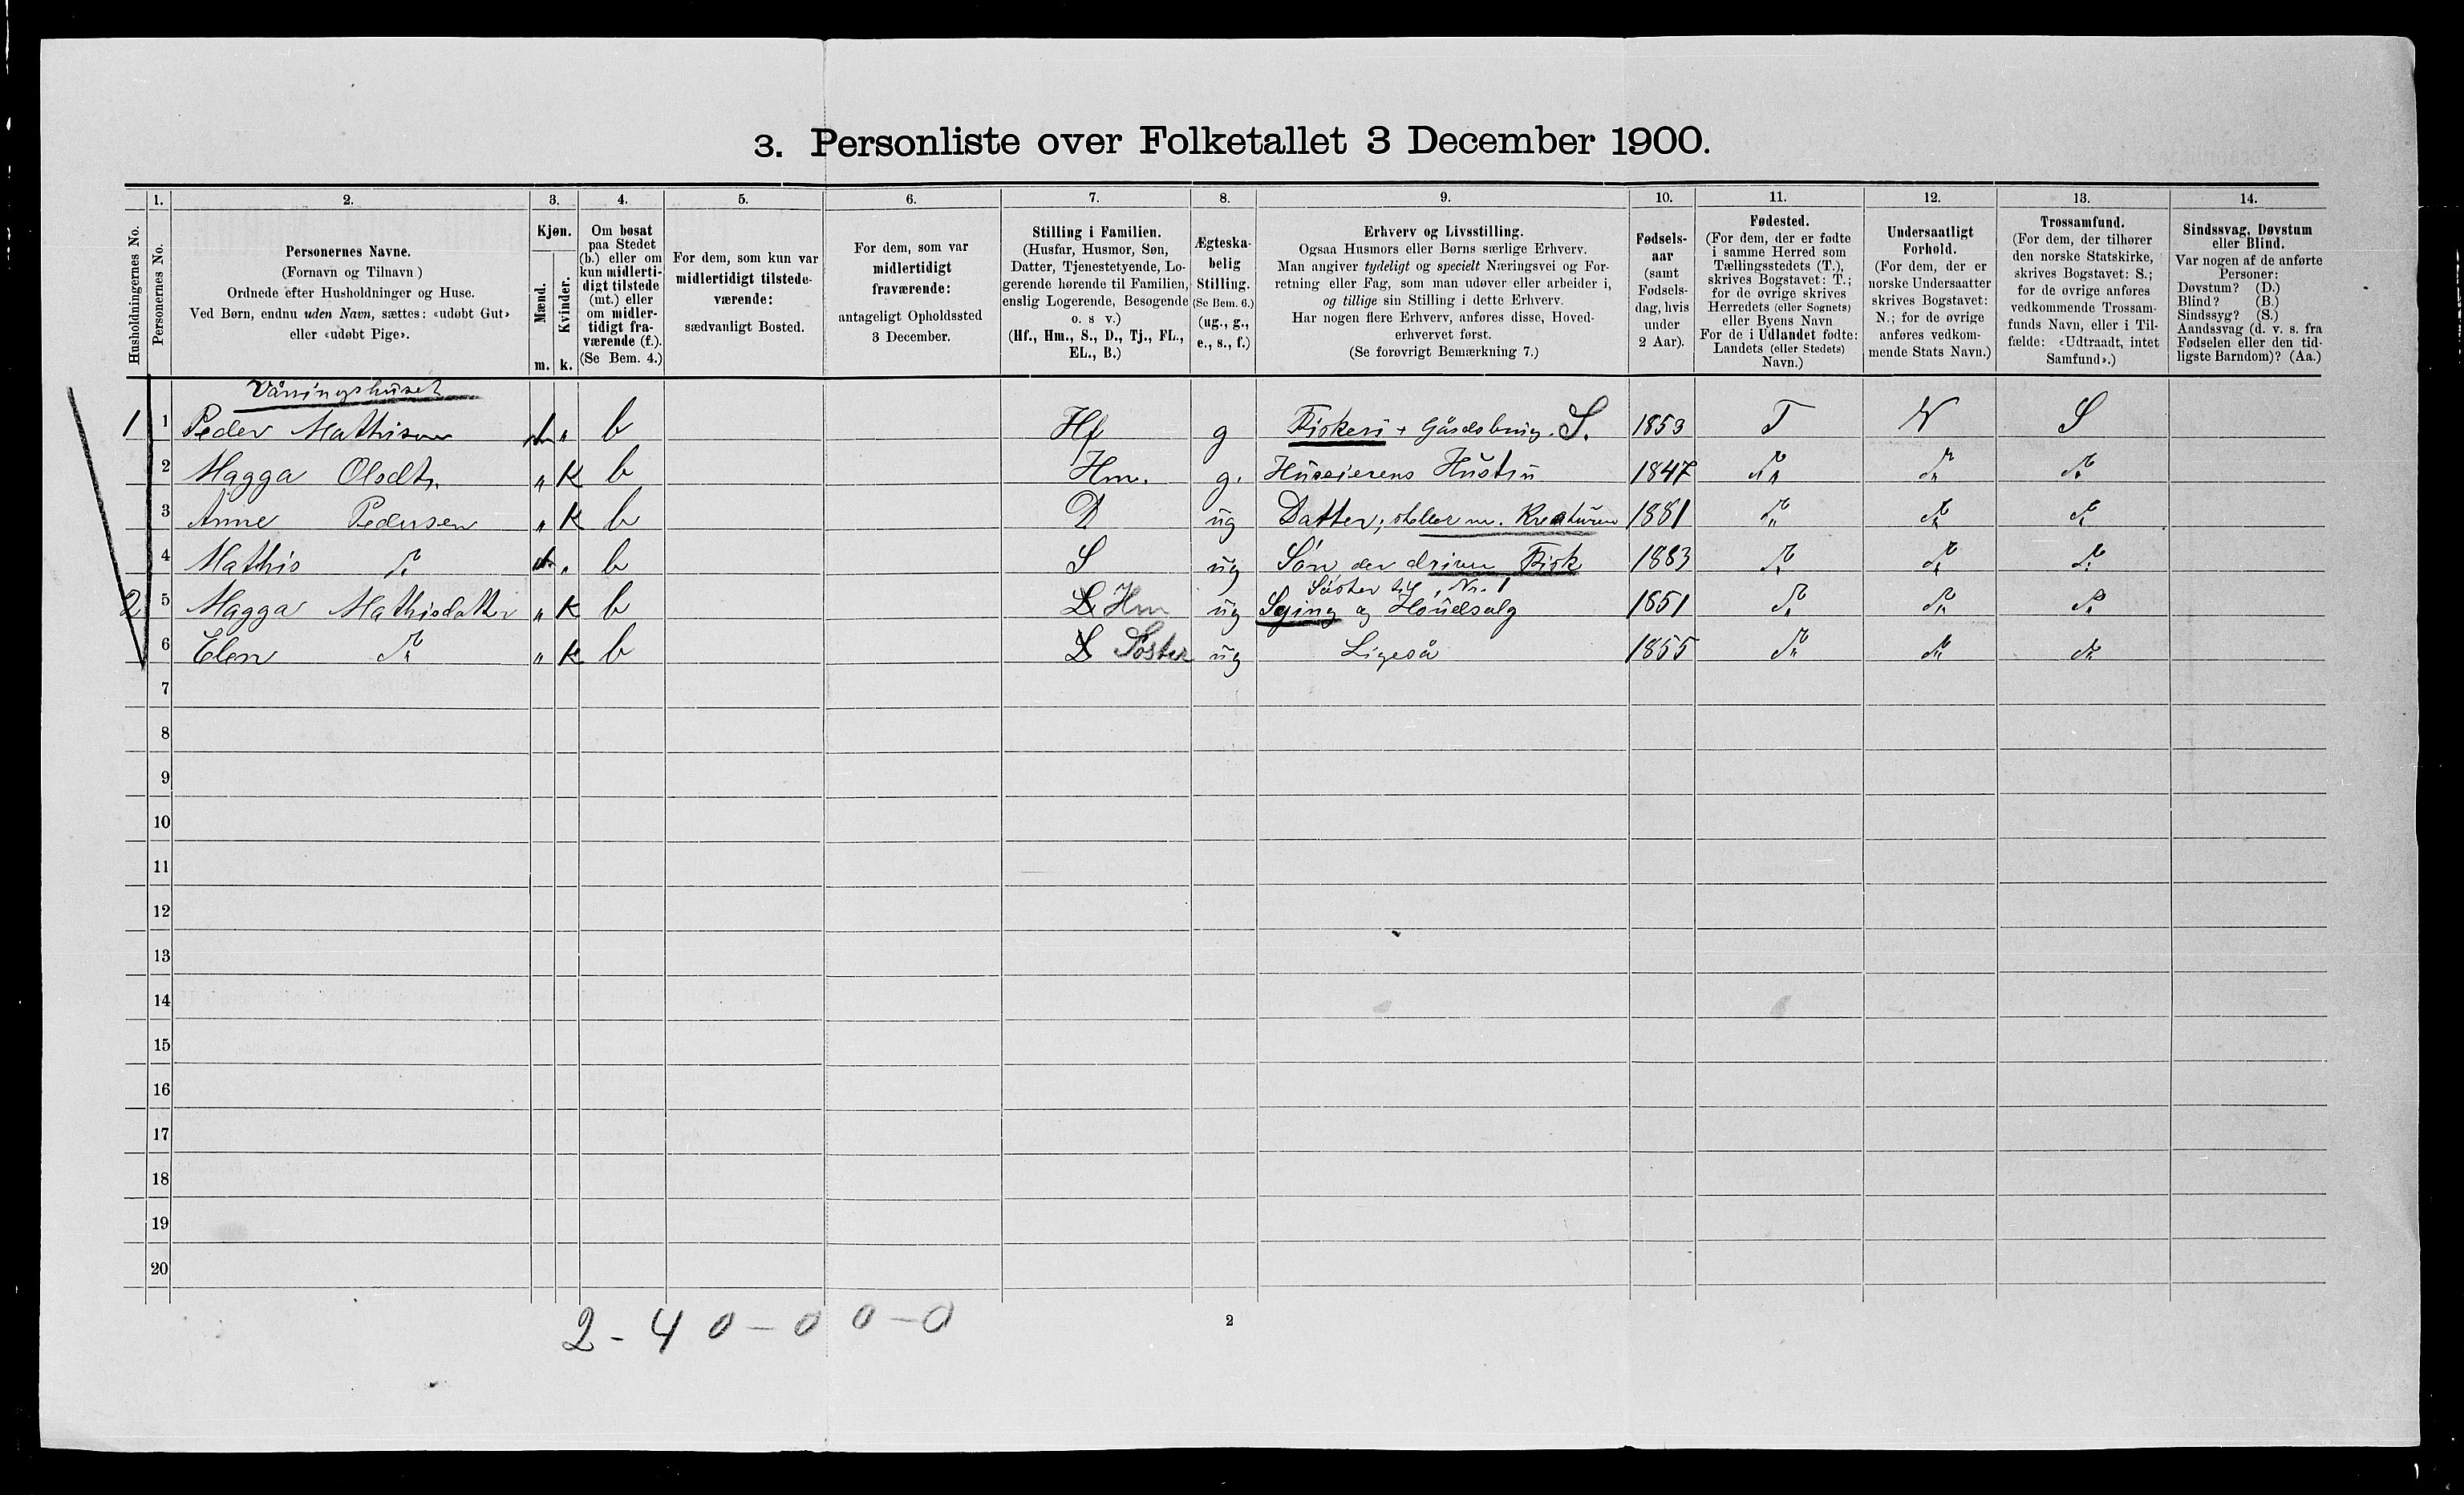 3. Personliste over Folketallet 3 December 1900.
Husholdningernes No.
1.
Personernes No.
2.
Personernes Navne.
(Fornavn og Tilnavn)
Ordnede efter Husholdninger og Huse.
Ved Børn, endnu uden Navn, sættes: «udøbt Gut»
eller «udøbt Pige».
3.
Kjøn.
Mænd.
m.
Kvinder.
k.
4.
Om bosat
paa Stedet
(b.) eller om
kun midlerti-
digt tilstede
(mt.) eller
om midler-
tidigt fra-
værende (f.).
(Se Bem. 4.)
5.
For dem, som kun var
midlertidigt tilstede-
værende:
sædvanligt Bosted.
6.
For dem, som var
midlertidigt
fraværende:
antageligt Opholdssted
3 December.
7.
Stilling i Familien.
(Husfar, Husmor, Søn,
Datter, Tjenestetyende, Lo-
gerende hørende til Familien,
enslig Logerende, Besøgende
o. s v.)
(Hf., Hm., S., D., Tj., FL.,
EL., B.)
8.
Ægteska-
belig
Stilling.
(Se Bem. 6.)
(ug., g.,
e., s., f.)
9.
Erhverv og Livsstilling.
Ogsaa Husmors eller Børns særlige Erhverv.
Man angiver tydeligt og specielt Næringsvei og For-
retning eller Fag, som man udøver eller arbeider i,
og tillige sin Stilling i dette Erhverv.
Har nogen flere Erhverv, anføres disse, Hoved-
erhvervet først.
(Se forøvrigt Bemærkning 7.)
10.
Fødsels-
aar
(samt
Fødsels-
dag, hvis
under
2 Aar).
11.
Fødested.
(For dem, der er fødte
i samme Herred som
Tællingsstedets (T.),
skrives Bogstavet: T.;
for de øvrige skrives
Herredets (eller Sognets)
eller Byens Navn
For de i Udlandet fødte:
Landets (eller Stedets)
Navn.)
12.
Undersaatligt
Forhold.
(For dem, der er
norske Undersaatter
skrives Bogstavet:
N.; for de øvrige
anføres vedkom-
mende Stats Navn.)
13.
Trossamfund.
(For dem, der tilhører
den norske Statskirke,
skrives Bogstavet: S.;
for de øvrige anføres
vedkommende Trossam-
funds Navn, eller i Til-
fælde: «Udtraadt, intet
Samfund».)
14.
Sindssvag, Døvstum
eller Blind.
Var nogen af de anførte
Personer:
Døvstum? (D.)
Blind? (B.)
Sindssyg? (S.)
Aandssvag (d. v. s. fra
Fødselen eller den tid-
ligste Barndom)? (Aa.)
Våningshuset
1 1 Peder Mathisen m " b Hf g Fiskeri + Gårdsbrug. S. 1853 T N S
2 Magga Olsdtr. " K b Hm. g. Huseierens Hustru 1847 do do do
3 Anne Pedersen " K b D ug Datter; steller m. Kreaturen 1881 do do do
4 Mathis do m " b S ug Søn der driver Fisk 1883 do do do
Søster til Nr. 1
2 5 Magga Mathisdatter " K b L Hm ug Sying og 1851 do do do
6 Elen do " K b L Søster ug Ligeså 1855 do do do
7
8
9
10
11
12
13
14
15
16
17
18
19
20
2 - 4 0 - 0 0 - 0
2